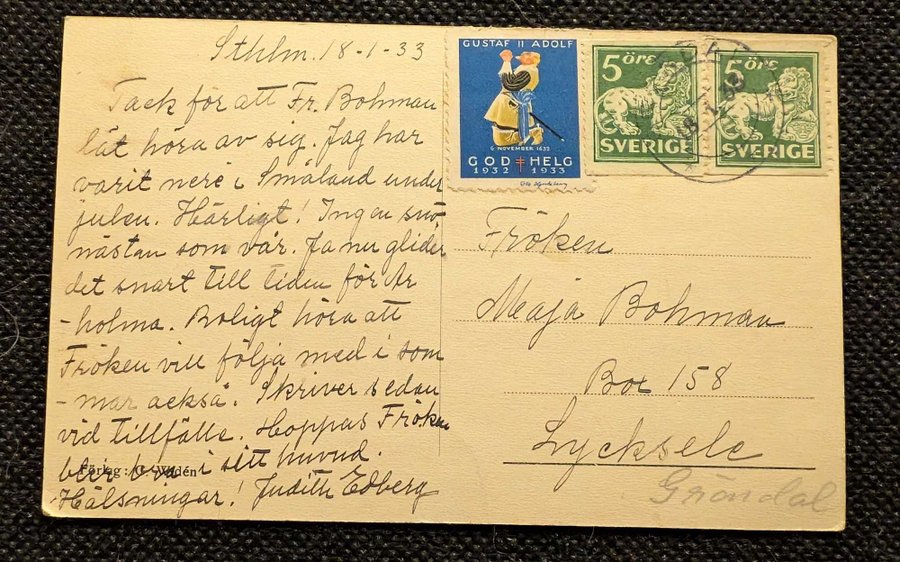 Sthlm. 18-1-33
Tack för att Fr. Bohman
lät höra av sig. Jag har
varit nere i Småland under
julen. Härligt! Ingen snö,
nästan som vår. Ja nu glider
det snart till tiden för Ar
-holma. Roligt höra att
Fröken vill följa med i som
-mar också. Skriver sedan
vid tillfälle. Hoppas Fröken
blir bra i sitt huvud.
Förlag: G. Widén
Hälsningar! Judith Edberg
GUSTAF II ADOLF
6 NOVEMBER 1632
GOD HELG
1932 1933
5 öre
SVERIGE
5 öre
SVERIGE
Fröken
Maja Bohman
Box 158
Lycksele
Gröndal